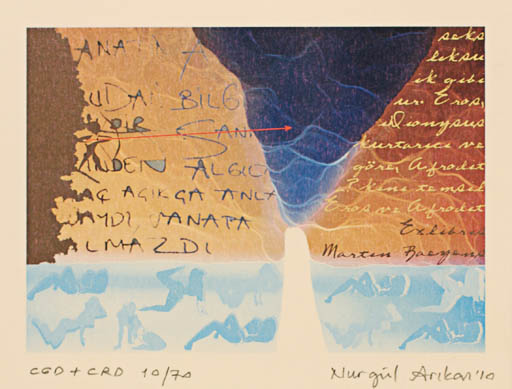 ANATIN A
UDAN BİLG
BİR SAN
İNDEN ALGIL
AÇ AÇIKÇA ANLA
SAYDI, SANATA
LMAZDI
seks
leksu
ik gibi
ur. Eros,
Dionysus
kurtarıcı ve
göre, Afrodit
temsel
Eros ve Afrodit
Exlibris
Martin Baeyens
CGD + CRD 10/70
Nurgül Arıkan '10